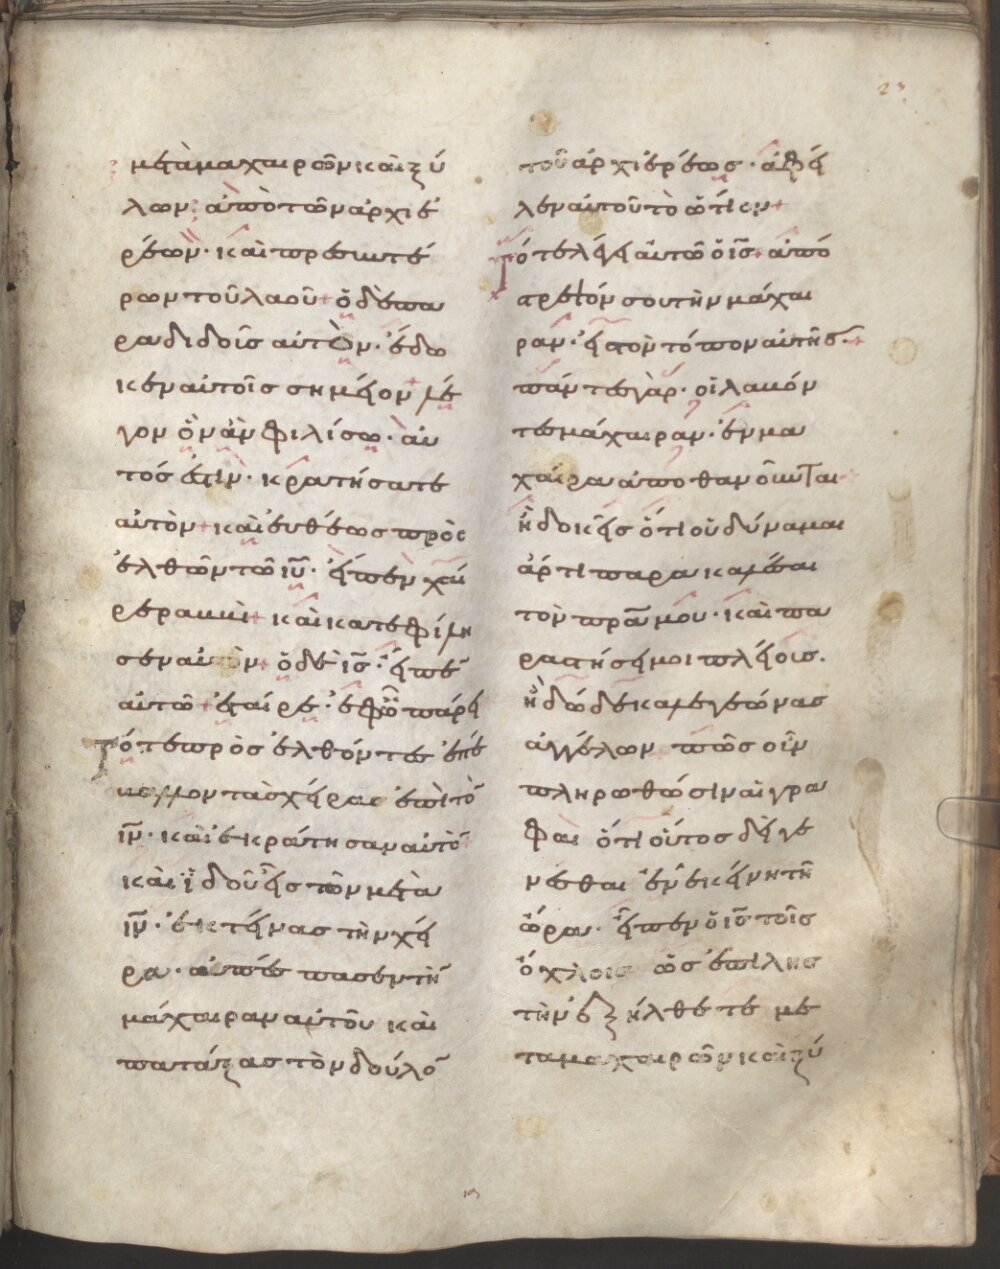 23
μετὰ μαχαιρῶν καὶ ξύ
λων· ἀπὸ τῶν ἀρχιε
ρέων· καὶ πρεσβυτέ
ρων τοῦ λαοῦ + ὁ δὲ πα
ραδιδοῖς αὐτὸν· ἔδω
κεν αὐτοῖς σημεῖον λέ
γον ὃν ἂν φιλίσω· αὐ
τός ἐστιν· κρατήσατε
αὐτὸν + καὶ εὐθέως προς
ελθὼν τῶ ἰυ̅· εἶπεν χαῖ
ρε ραββὶ + καὶ κατεφίλη
σεν αὐτὸν + ὁ δὲ ις̅· εἶπε̅
αὐτῶ + ἑταίρε· ἐφ ὧ πάρει
Τότε προσελθόντες ἐπέ
βαλλον τὰς χεῖρας ἐπὶ τὸ̅
ιν̅· καὶ ἐκράτησαν αὐτὸ̅
καὶ ἰδοῦ εἷς τῶν μετὰ
ιυ̅· ἐκτείνας τὴν χεῖ
ρα· ἀπέσπασεν τὴν
μάχαιραν αὐτοῦ καὶ
πατάξας τὸν δοῦλο̅
τοῦ ἀρχιερέως· ἀφεῖ
λεν αὐτοῦ τὸ ὠτίον +
Τότε λέγει αὐτῶ ὁ ις̅ + ἀπό
στρεψόν σου τὴν μάχαι
ραν· εἰς τὸν τόπον αὐτῆς· +
πάντες γὰρ· οἱ λαβόν
τες μάχαιραν· ἐν μα
χαίρα ἀποθανοῦνται +
ἢ δοκεῖς ὅτι οὐ δύναμαι
ἄρτι παρακαλέσαι
τὸν πρα̅ μου· καὶ πα
ραστήσει μοι πλείοις.
ἢ δώδεκα λεγεῶνας
ἀγγέλων πῶς οὖν
πληρωθώσιν αἱ γρα
φαὶ ὅτι οὕτος δεῖ γε
νέσθαι ἐν ἐκείνη τῆ
ὥρα· εἶπεν ὁ ις̅ τοῖς
ὄχλοις ὡς ἐπὶ λησ
τὴν ἐξήλθετε με
τὰ μαχαιρῶν καὶ ξύ